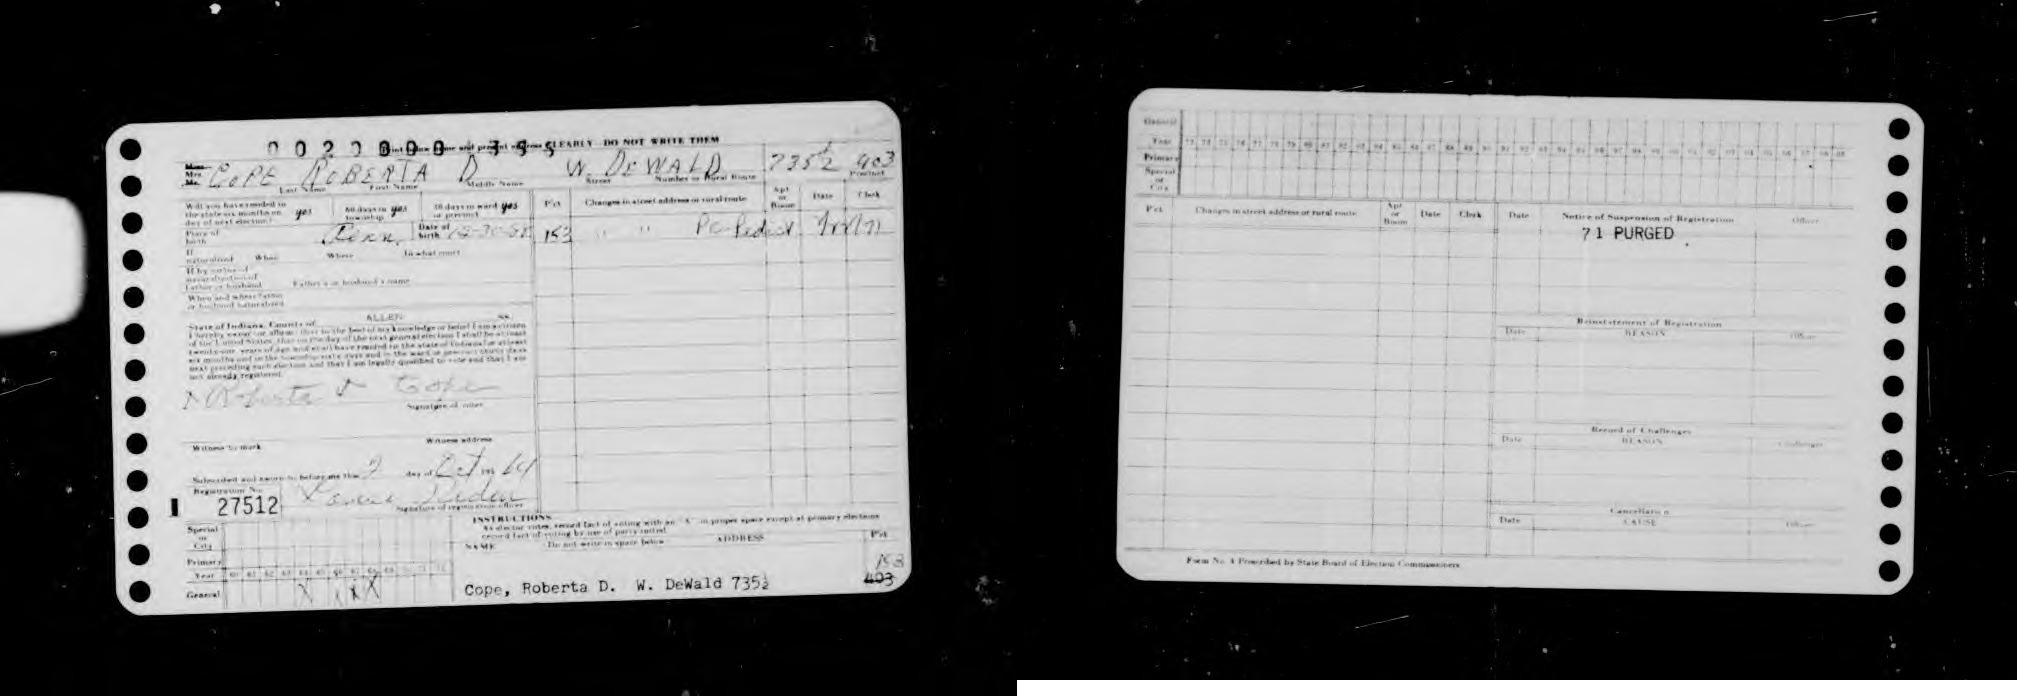 CLEARLY DO NOT WRITE THEM
COPE ROBERTA D. W. DEWALD 735½ 403
Last Name First Name Middle Name Street Number or Rural Route Precinct
Will you have resided in the state six months on day of next election? yes 60 days in township yes 30 days in ward or precinct yes
P'ct Changes in street address or rural route Apt or Room Date Clerk
Place of birth Penn. Date of birth
153 " "
If naturalized When Where In what court
If by virtue of naturalization of Father or husband Father's or husband's name
When and where Father or husband naturalized
State of Indiana, County of ALLEN ss.
I hereby swear (or affirm) that to the best of my knowledge or belief I am a citizen
of the United States, that on the day of the next general election I shall be at least
twenty-one years of age and shall have resided in the state of Indiana for at least
six months and in the township sixty days and in the ward or precinct thirty days
next preceding such election and that I am legally qualified to vote and that I am
not already registered.
Roberta D Cope
Signature of voter
Witness to mark Witness address
Subscribed and sworn to before me this day of Oct 64
Registration No.
27512
Signature of registration officer
INSTRUCTIONS
As elector votes, record fact of voting with an "X" in proper space except at primary elections
record fact of voting by use of party initial
NAME Do not write in space below ADDRESS P'ct
Special or City
Primary
Year 60 61 62 63 64 65 66 67 68 69 70 71 72
General X X X
153
Cope, Roberta D. W. DeWald 735½ 403
General
Year
Primary
Special or City
P'ct Changes in street address or rural route Apt or Room Date Clerk
Date Notice of Suspension of Registration Officer
71 PURGED
Reinstatement of Registration
Date REASON Officer
Record of Challenges
Date REASON Challenger
Cancellation
Date CAUSE Officer
Form No. 4 Prescribed by State Board of Election Commissioners